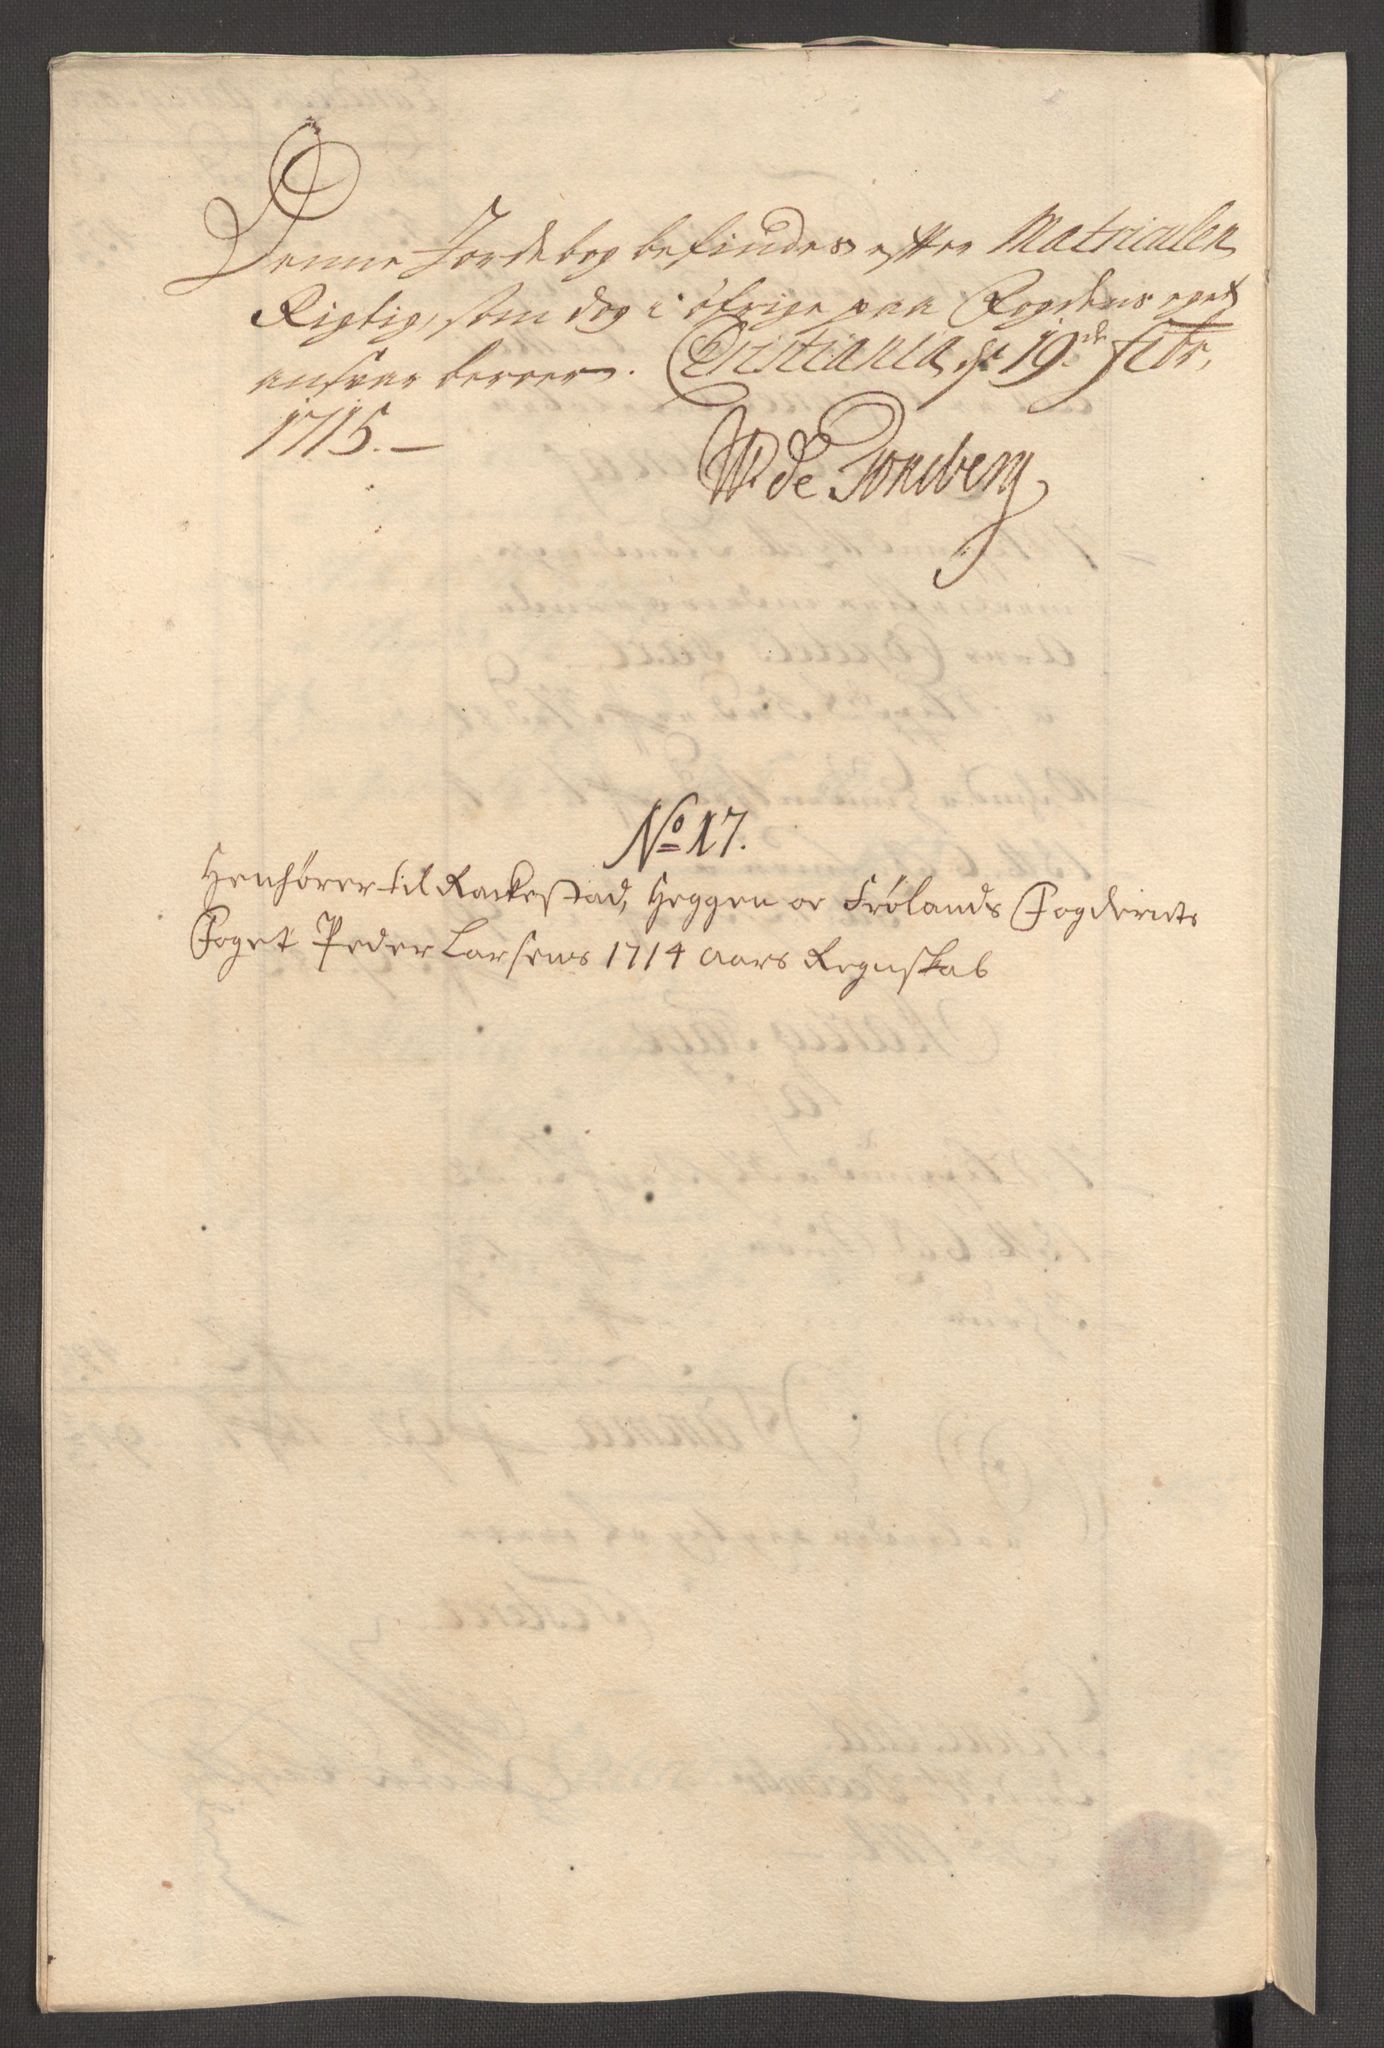 Denne Jordebog befindes efter Matriculen
Rigtig, som dog i øfrige paa Fogdens eget
ansvar beroer. Christiania d 19de Febr.
1715.
W. de Tonsberg
No 17.
Henhører til Rackestad, Heggen oc Frølands Fogderiets
Foget Peder Larsens 1714 aars Regnskab